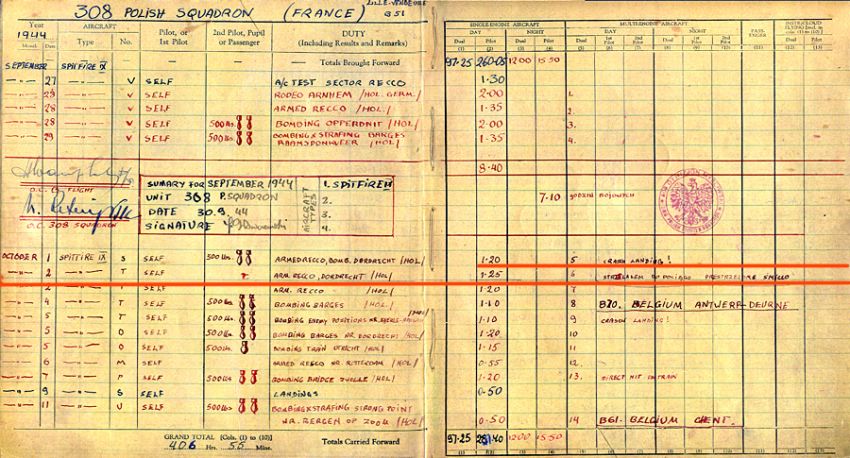 308 POLISH SQUADRON (FRANCE)
LILLE-VENDEVILLE
B51
Year
1944
AIRCRAFT
Pilot, or
1st Pilot
2nd Pilot, Pupil
or Passenger
DUTY
(Including Results and Remarks)
SINGLE-ENGINE AIRCRAFT
MULTI-ENGINE AIRCRAFT
DAY
NIGHT
DAY
NIGHT
Month
Date
Type
No.
Dual
Pilot
Dual
Pilot
(1)
(2)
(3)
(4)
Totals Brought Forward
97·25 260·05 12 00 15 50
SEPTEMBER
SPITFIRE IX
27 V SELF A/C TEST SECTOR RECCO 1·30
28 V SELF RODEO ARNHEM /HOL. GERM./ 2·00 1.
28 V SELF ARMED RECCO /HOL/ 1·35 2.
28 V SELF 500lbs. BOMBING OPPERDNIT /HOL/ 2·00 3.
29 V SELF 500lbs. BOMBING & STRAFING BARGES 1·35 4.
/HOL/
8·40
O.C. FLIGHT
O.C. 308 SQUADRON
SUMARY FOR SEPTEMBER 1944
UNIT 308 P.SQUADRON
DATE 30.9.44
SIGNATURE
AIRCRAFT TYPES
1. SPITFIRE IX
2.
3.
4.
7·10 GODZIN BOJOWYCH
OCTOBER 1 SPITFIRE IX S SELF 500lbs. ARMED RECCO, BOMB. DORDRECHT /HOL/ 1·20 5 CRASH LANDING!
2 T SELF ARM. RECCO, DORDRECHT /HOL/ 1·25 6
2 T SELF ARM. RECCO /HOL/ 1·20 7
4 T SELF 500lbs. BOMBING BARGES /HOL/ 1·10 8 B70. BELGIUM ANTWERP-DEURNE
5 T SELF 500lbs. BOMBING ENEMY POSITIONS NR. /HOL/ 1·10 9 CRASH LANDING!
5 O SELF 500lbs. BOMBING BARGES NR. DORDRECHT /HOL/ 1·20 10
5 O SELF 500lbs. BOMBING TRAIN UTRECHT /HOL/ 1·15 11
6 M SELF ARMED RECCO NR. ROTTERDAM /HOL/ 0·55 12.
7 SELF 500lbs. BOMBING BRIDGE ZWOLLE /HOL/ 1·20 13. DIRECT HIT IN TRAIN
9 S SELF LANDINGS 0·50
11 V SELF 500lbs. BOMBING & STRAFING STRONG POINT
NR. BERGEN OP ZOOM /HOL/ 0·50 14 B61. BELGIUM GHENT.
GRAND TOTAL [Cols. (1) to (10)]
406 Hrs. 55 Mins.
Totals Carried Forward
97·25 281·40 12 00 15 50
(1)
(2)
(3)
(4)